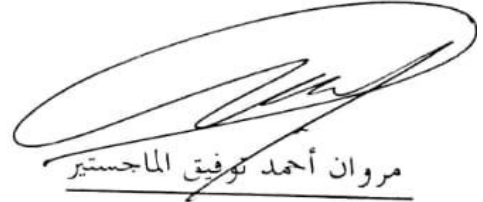 مروان أحمد توفيق الماجستير